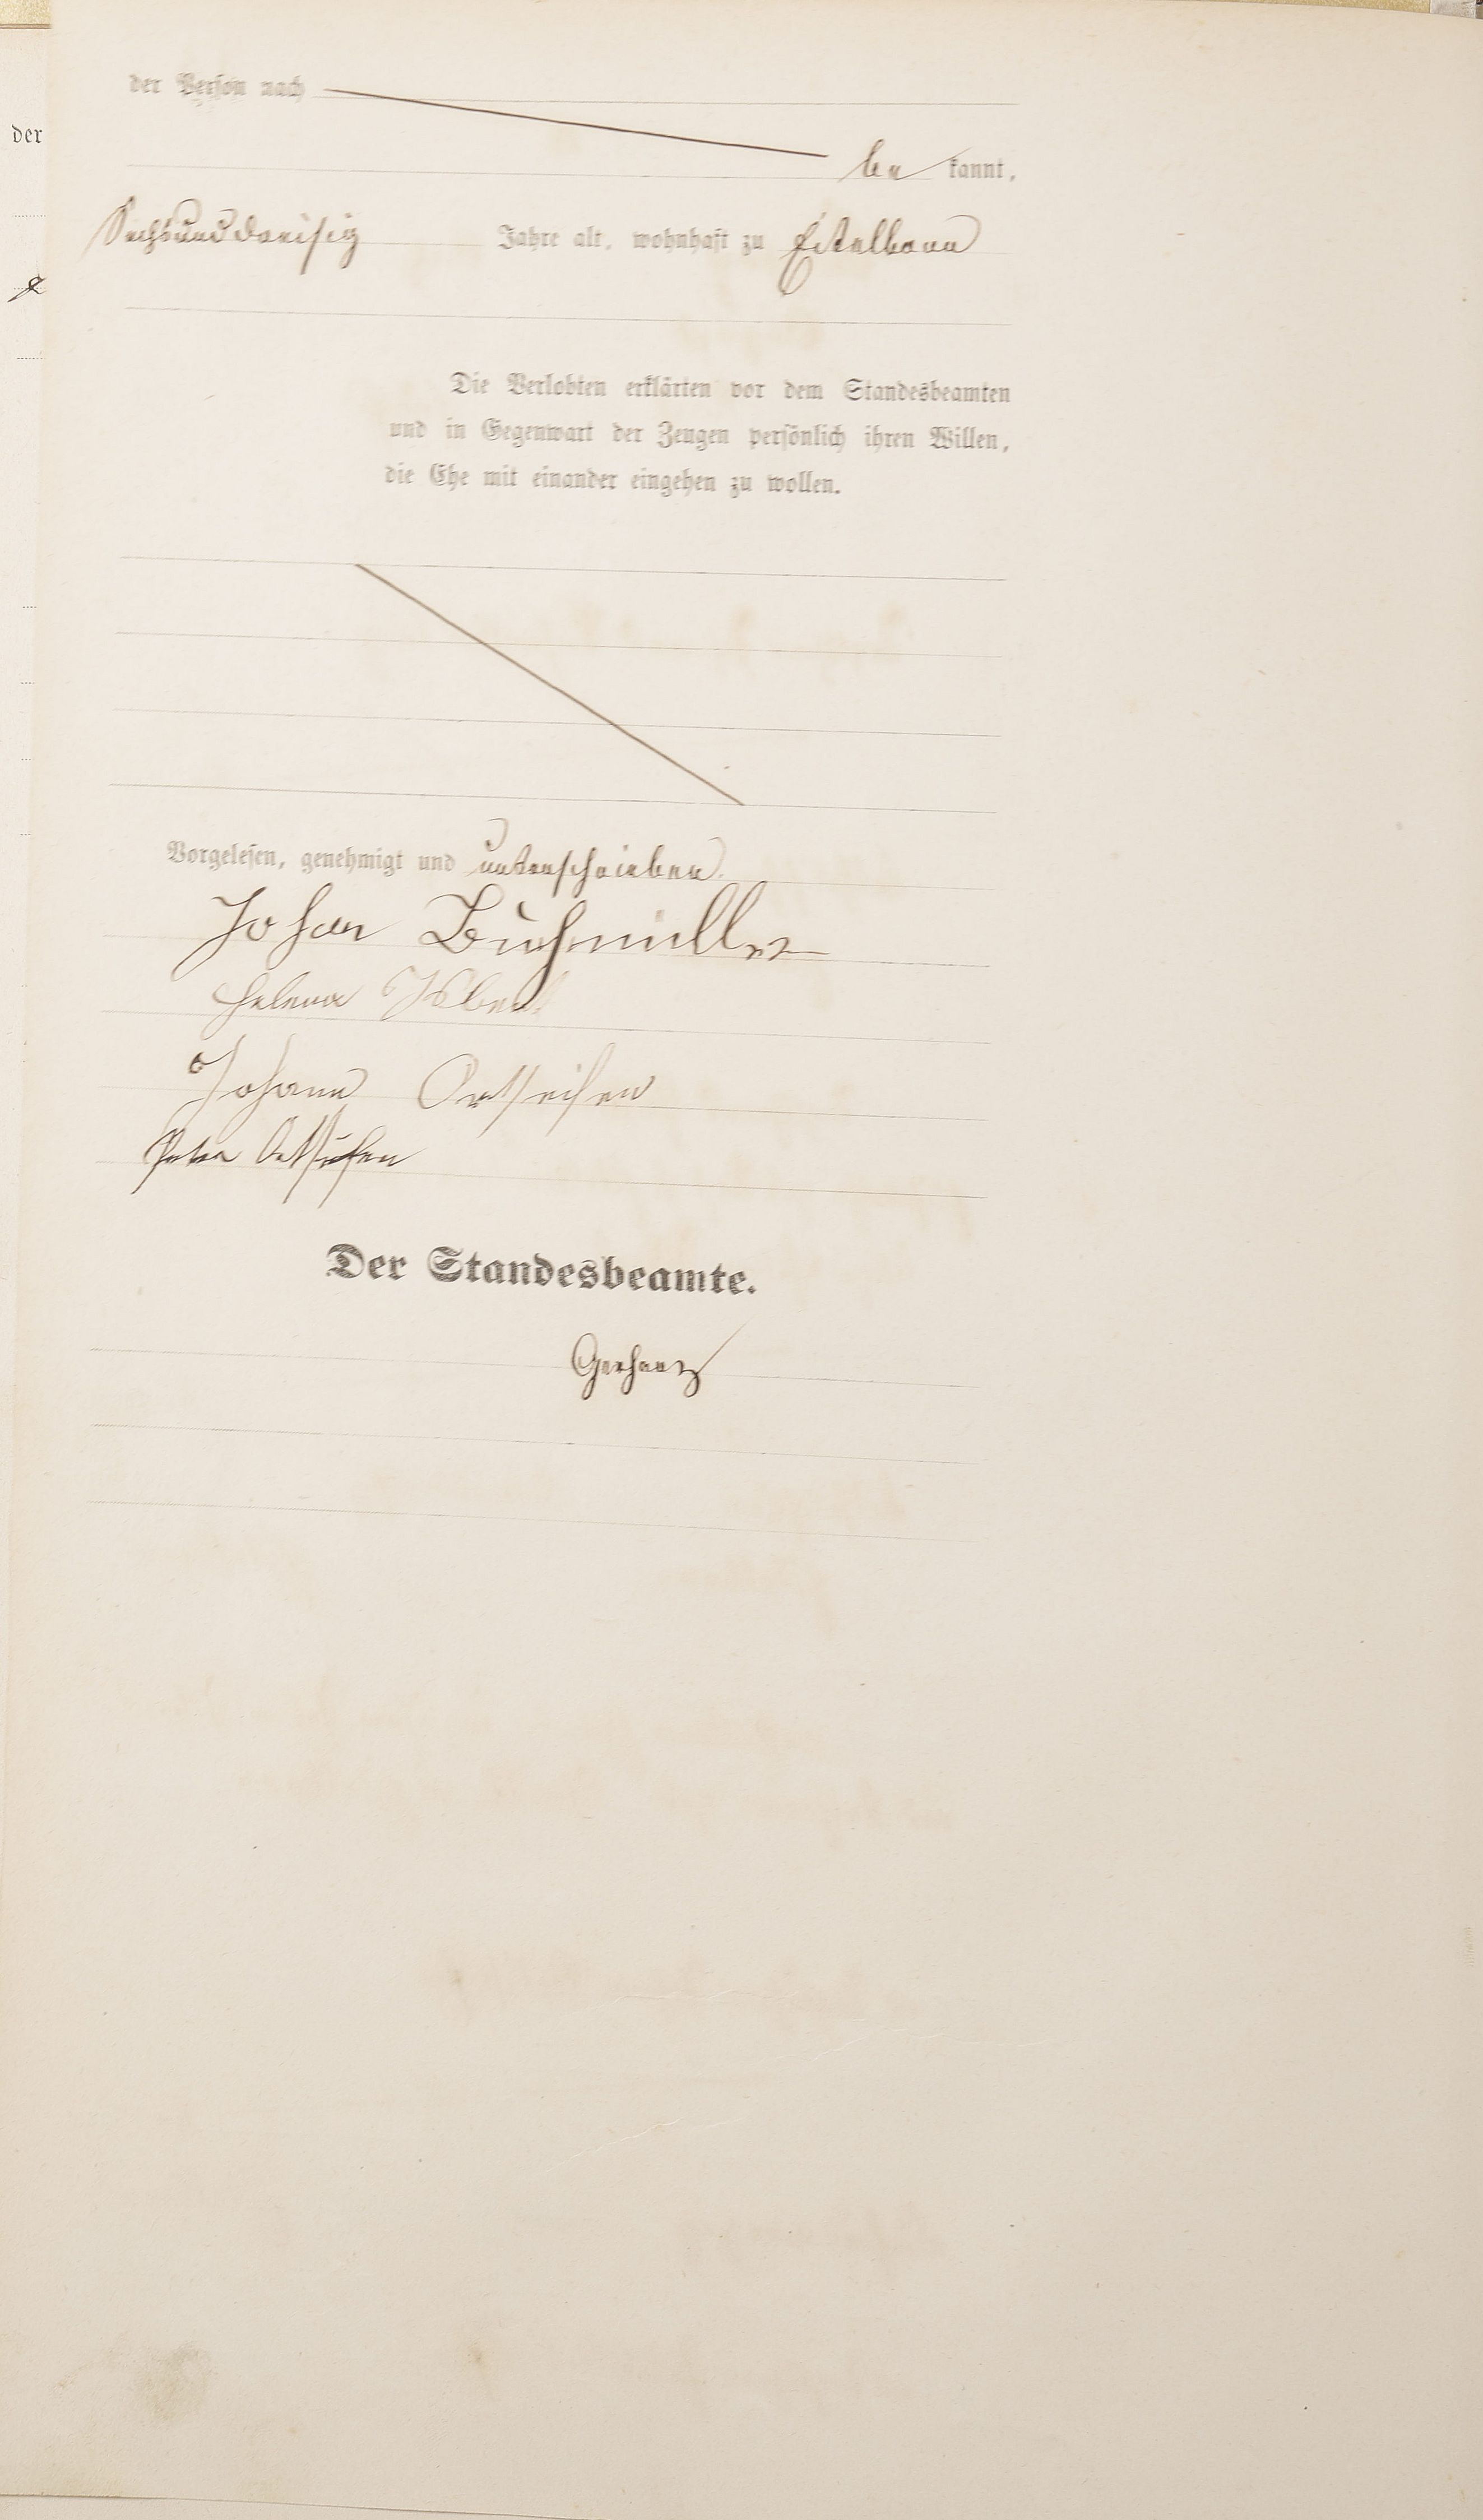 der Person nach
der
be kannt,
Sechsunddreisig Jahre alt, wohnhaft zu Eitelborn
Die Verlobten erklärten vor dem Standesbeamten
und in Gegenwart der Zeugen persönlich ihren Willen,
die Ehe mit einander eingehen zu wollen.
Vorgelesen, genehmigt und unterschrieben.
Johan Buchmüller
Helena Isbert
Johann Ortseifen
Peter Ortseifen
Der Standesbeamte.
Gerhartz